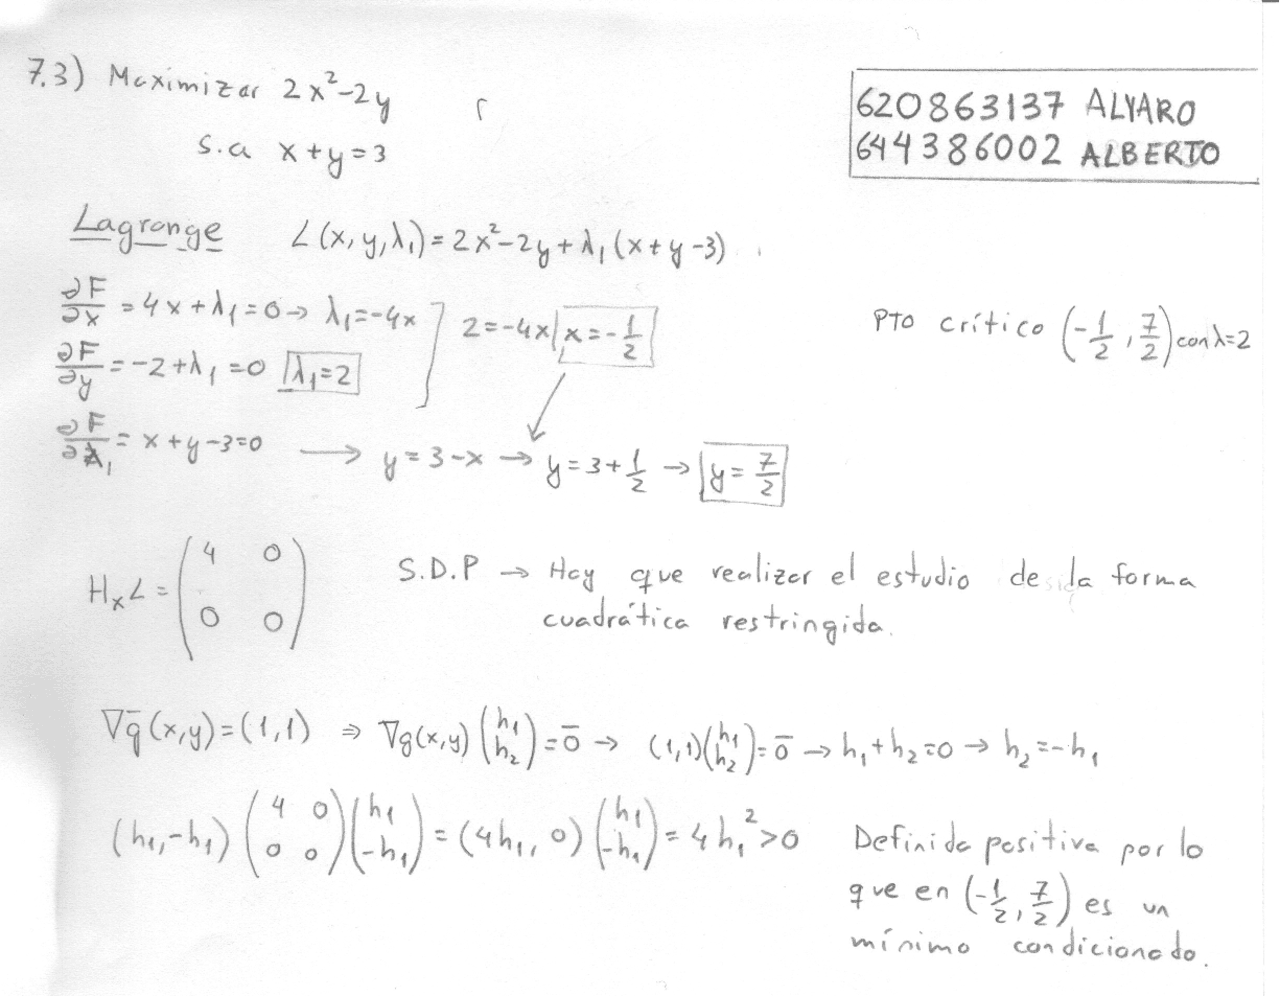 7.3) Maximizar 2x²-2y
s.a x+y=3
620863137 ALVARO
644386002 ALBERTO
Lagrange L(x,y,λ₁)=2x²-2y+λ₁(x+y-3)
∂F/∂x = 4x+λ₁=0→ λ₁=-4x
2=-4x x=-1/2
∂F/∂y = -2+λ₁=0 λ₁=2
Pto crítico (-1/2, 7/2) con λ=2
∂F/∂λ₁ = x+y-3=0 → y=3-x → y=3+1/2 → y=7/2
HₓL = (4 0
0 0)
S.D.P → Hay que realizar el estudio de la forma
cuadrática restringida.
∇ḡ(x,y)=(1,1) ⇒ ∇g(x,y)(h₁ h₂)=0̄ → (1,1)(h₁ h₂)=0̄ → h₁+h₂=0 → h₂=-h₁
(h₁,-h₁)(4 0 0 0)(h₁ -h₁)=(4h₁, 0)(h₁ -h₁)=4h₁²>0
Definida positiva por lo
que en (-1/2, 7/2) es un
mínimo condicionado.